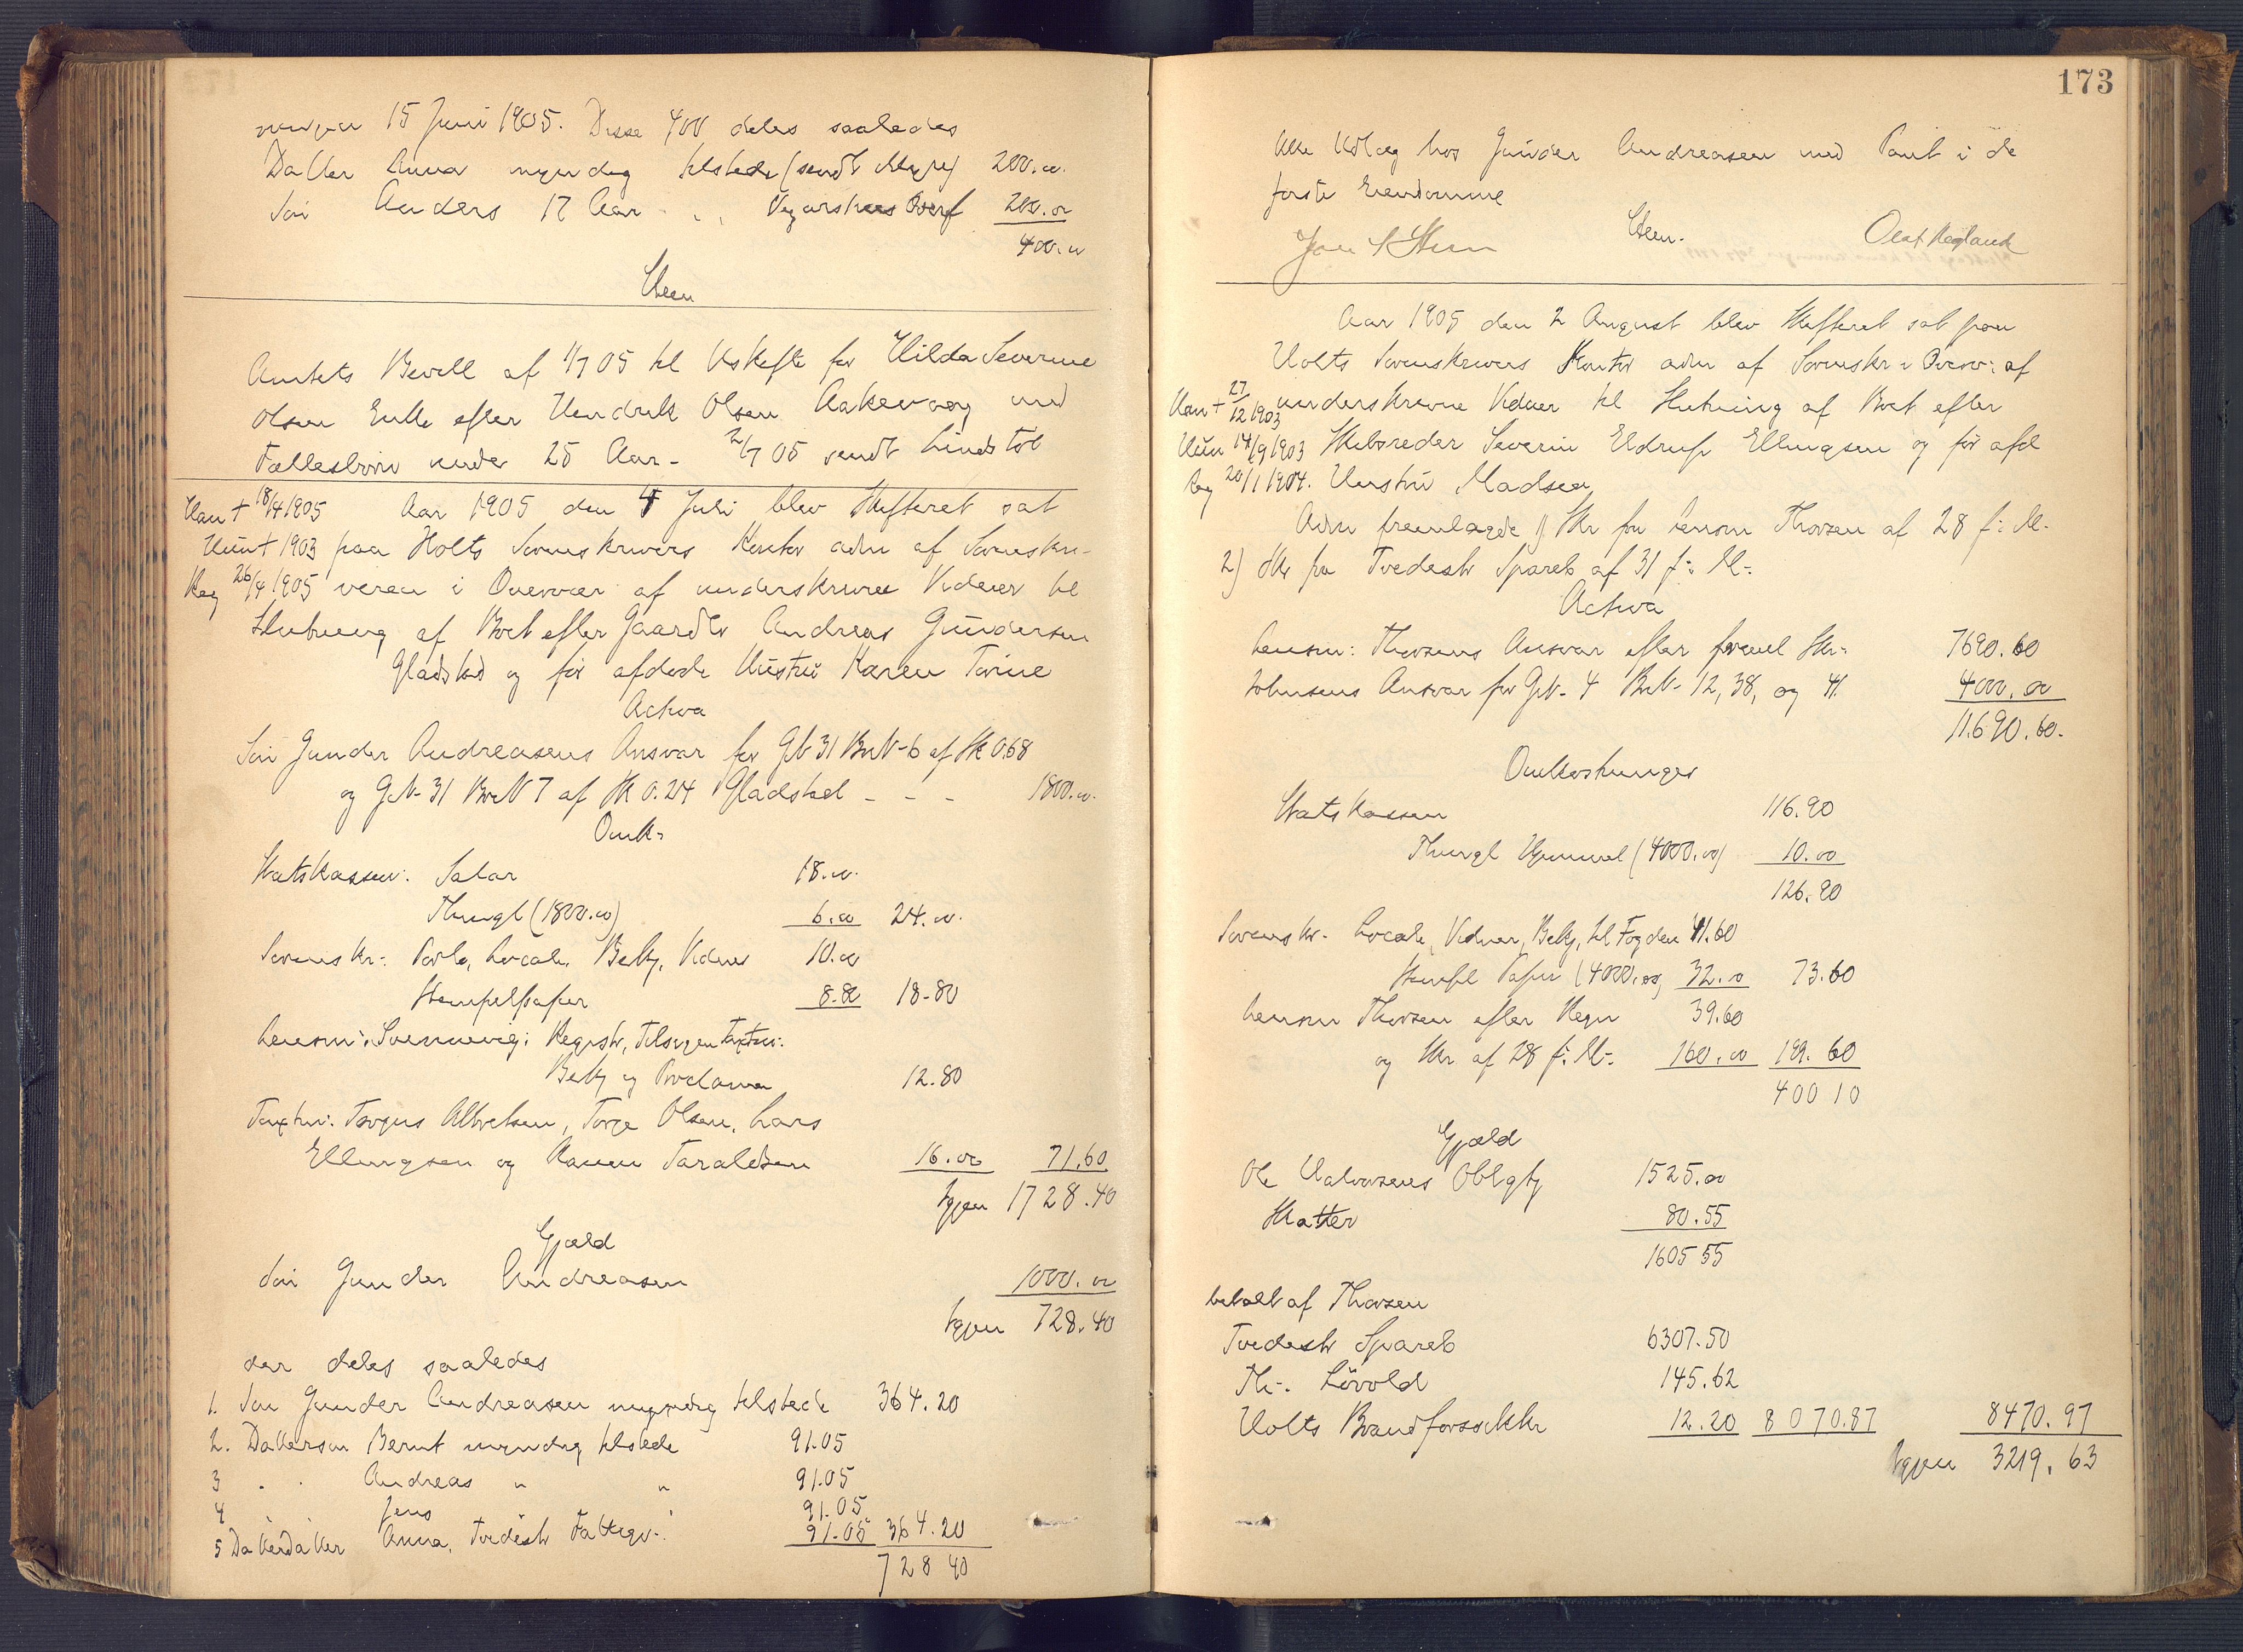 15 Juni 1905. Disse 400 deles saaledes
Datter Anna myndig tilstede (sendt 200.00.
Søn Anders 17 Aar " Vegarsheis Overf 200.00
400.00
Steen
Amtets Bevill af 1/7 05 til Uskifte for Hilda Severine
Olsen Enke efter Hendrik Olsen Aakevaag med
Fællesbørn under 25 Aar - 2/7 05 sendt Lindstøl
Han + 18/4 1905 Aar 1905 den 4 Juli blev Skifteret sat
Hun + 1903 paa Holts Sorenskrivers Kontor adm af Sorenskri-
Reg 26/4 1905 veren i Overvær af underskrevne Vidner til
Slutning af Boet efter Gaardbr Andreas Gundersen
Gladstad og før afdøde Hustru Karen Torine
Activa
Søn Gunder Andreasens Ansvar for GN 31 BrN-6 af Sk 0.68
og GN- 31 BrN 7 af Sk 0.24 Gladstad - - - 1800.00.
Omk-
Statskassen: Salær 18.00.
Thingl (1800.00) 6.00 24.00.
Sorenskr-: Porto, Locale, Bekj, Vidner 10.00
Stempelpapir 8.80 18-80
Lensm: Svennevig: Registr, Tilsigen Taxtm:
Bekj og Proclama 12.80
Taxtm: Torjus Albretsen, Torge Olsen, Lars
Ellingsen og Hannen Taraldsen 16.00 71.60
Igjen 1728.40
Gjæld
Søn Gunder Andreasen 1000.00
Igjen 728.40
der deles saaledes
1. Søn Gunder Andreasen myndig tilstede 364.20
2. Dattersøn Bernt myndig tilstede 91.05
3 " " Andreas " " 91.05
4 " Jens " 91.05
5 DatterDatter Anna, Tvedestr Fattigv-: 91.05 364.20
728 40
173
Alle Udlæg hos Gunder Andreasen med Pant i de
første Eiendomme
Steen.
Olaf Røgland
Aar 1905 den 2 August blev Skifteret sat paa
Holts Sorenskrivers Kontor adm af Sorenskr i Overv: af
Han + 27/12 1903 underskrevne Vidner til Slutning af Boet efter
Hun 14/9 1903 Skibsreder Severin Eldrup Ellingsen og før afd
Reg 20/1 1904. Hustru Madsea
Adm fremlagde 1) Skr fra Lensm Thorsen af 28 f: M-
2) Skr fra Tvedestr Spareb af 31 f: M-.
Activa
Lensm: Thorsens Ansvar efter freml Skr- 7690.60
Johnsens Ansvar for GN- 4 BrN- 12, 38, og 41. 4000.00
11.690.60.
Omkostninger
Statskassen 116.90
Thingl (4000.00) 10.00
126.90
Sorenskr- Locale, Vidner, Bekj, til Fogden 41.60
Stempl Papir (4000.00) 32.00 73.60
Lensm Thorsen efter Regn 39.60
og Skr af 28 f: M-. 160.00 199.60
400 10
Gjæld
Ole Halvorsens Obligtj 1525.00
Skatter 80.55
1605 55
betalt af Thorsen
Tvedestr Spareb 6307.50
Th-. Løvold 145.62
Holts Brandforssikkr 12.20 8070.87 8470.97
Igjen 3219.63